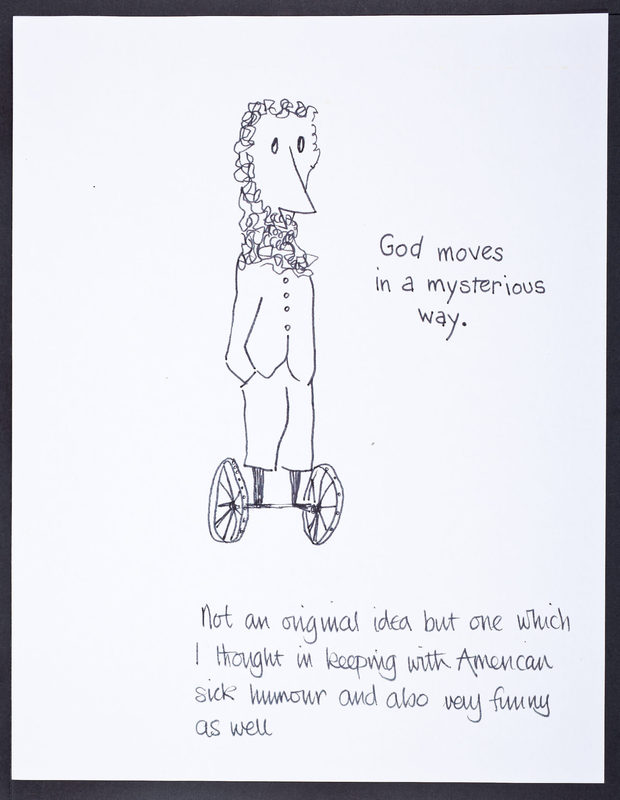 God moves
in a mysterious
way.
Not an original idea but one which
I thought in keeping with American
sick humour and also very funny
as well